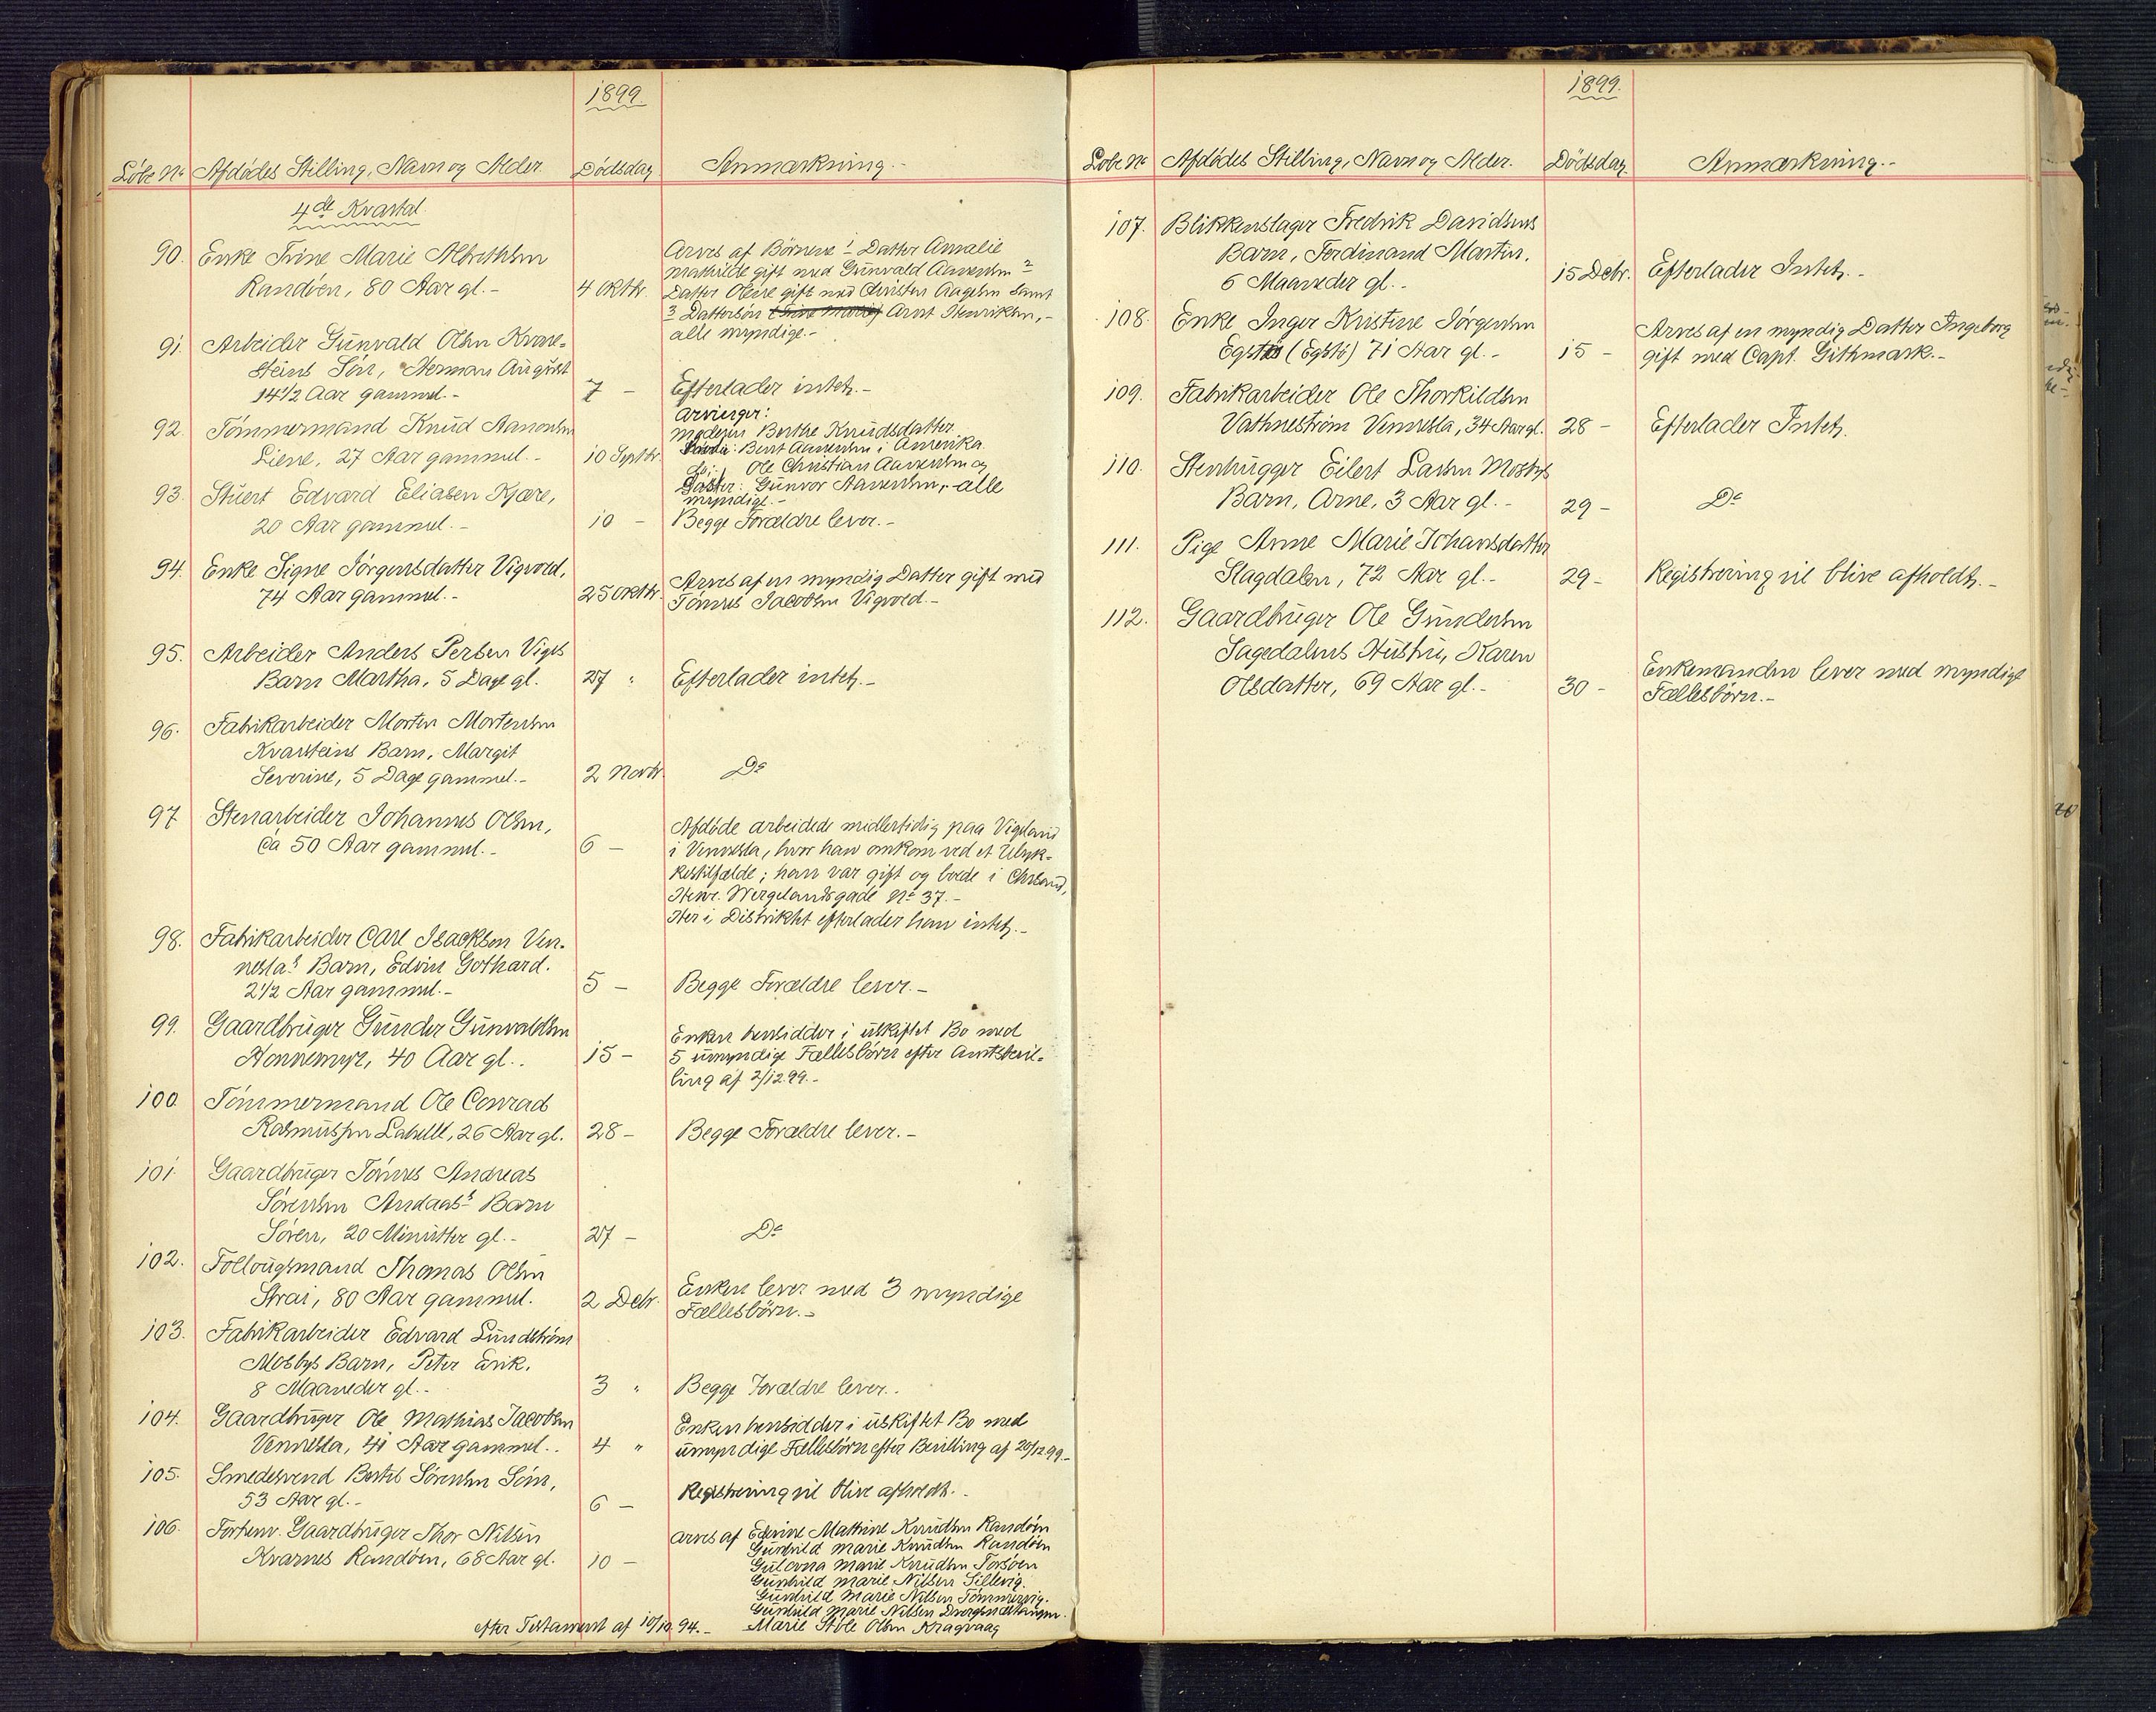 1899.
Löbe No Afdödes Stilling, Navn og Alder. Dödsdag. Anmærkning.-
4de Kvartal.
90. Enke Trine Marie Albrethsen
Randöen, 80 Aar gl.- 4 Oktbr.
Arves af Börnene 1 Datter Amalie
Mathilde gift med Gunvald Aanensen 2
Datter Olene gift med Christen Aagesen samt
3 Dattersön Arnt Henriksen,-
alle myndige.-
91. Arbeider Gunvald Olsen Kvare-
steins Sön, Herman August
14 1/2 Aar gammel.- 7 - Efterlader intet.-
92. Tömmermand Knud Aanonsen
Liene, 27 Aar gammel.- 10 Septbr.
Arvinger:
Moderen Berthe Knudsdatter
Bent Aanensen i Amerika
do: Ole Christian Aanensen og
Gunvor Aanensen,- alle
myndige.-
93. Stuert Edvard Eliasen Kjære,
20 Aar gammel.- 10 - Begge Forældre lever.-
94. Enke Signe Jörgensdatter Vigvold,
74 Aar gammel.- 25 Oktbr.
Arves af en myndig Datter gift med
Tönnes Jacobsen Vigvold.-
95. Arbeider Anders Persen Viges
Barn Martha, 5 Dage gl. 27 " Efterlader intet.-
96. Fabrikarbeider Morten Mortensen
Kvarsteins Barn, Margit
Severine, 5 Dage gammel.- 2 Novbr. Do
97 Stenarbeider Johannes Olsen,
ca 50 Aar gammel.- 6 -
Afdöde arbeidede midlertidig paa Vigeland
i Vennesla, hvor han omkom ved et Ulyk-
kestilfælde; han var gift og boede i Chrsand,
Henr. Wergelandsgade No 37.-
Her i Distriktet efterlader han intet.-
98. Fabrikarbeider Carl Isacksen Ven-
nesla's Barn, Edvin Gothard.
2 1/2 Aar gammel.- 5 - Begge Forældre lever.-
99. Gaardbruger Gunder Gunvaldsen
Honnemyr, 40 Aar gl.. 15 -
Enken hensidder i uskiftet Bo med
5 umyndige Fællesbörn efter Amtsbevil-
ling af 2/12 99.-
100. Tömmermand Ole Conrad
Rasmussen Labell, 26 Aar gl. 28 - Begge Forældre lever.-
101 Gaardbruger Tönnes Andreas
Sörensen Andaas's Barn
Sören, 20 Minutter gl.- 27 - Do
102. Follougsmand Thomas Olsen
Strai, 80 Aar gammel. 2 Decbr.
Enken lever med 3 myndige
Fællesbörn.-
103. Fabrikarbeider Edvard Lundströms
Mosbys Barn, Peter Erik.
8 Maaneder gl.- 3 " Begge Forældre lever.-
104. Gaardbruger Ole Mathias Jacobsen
Vennesla, 41 Aar gammel.. 4 "
Enken hensidder i uskiftet Bo med
umyndige Fællesbörn efter Bevilling af 20/12 99.-
105. Smedesvend Bertel Sörensen Sönr,
53 Aar gl.- 6 - Registrering vil blive afholdt.-
106. Forhenv. Gaardbruger Thor Nilsen
Kvarnes Randöen, 68 Aar gl. 10 -
Arves af Edvine Mathine Knudsen Randöen
Gunhild Marie Knudsen Randöen
Gulovna Marie Knudsen Torsöen
Gunhild Marie Nilsen Sillevig.
Gunhild Marie Nilsen Tömmervig.
Gunhild Marie Nilsen
efter Testament af 10/10 94.- Marie Ståle Olsen Kragvaag
1899.
Löbe No Afdödes Stilling, Navn og Alder. Dödsdag. Anmærkning.-
107. Blikkenslager Fredrik Davidsens
Barn, Ferdinand Martin.
6 Maaneder gl.- 15 Decbr. Efterlader Intet.-
108. Enke Inger Kristine Jörgensen
(Egstö) 71 Aar gl.- 15 -
Arves af en myndig Datter Ingeborg
gift med Capt. Githmark.-
109. Fabrikarbeider Ole Thorkildsen
Vathneström Vennesla, 34 Aar gl. 28 - Efterlader Intet.
110. Stenhugger Eilert Larsen Mosbys
Barn, Arne, 3 Aar gl.- 29 - Do
111. Pige Anne Marie Johansdatter
Slagdalen, 72 Aar gl.- 29 - Registrering vil blive afholdt.-
112. Gaardbruger Ole Gundersen
Sagedalens Hustru, Karen
Olsdatter, 69 Aar gl.- 30 -
Enkemanden lever med myndige
Fællesbörn.-